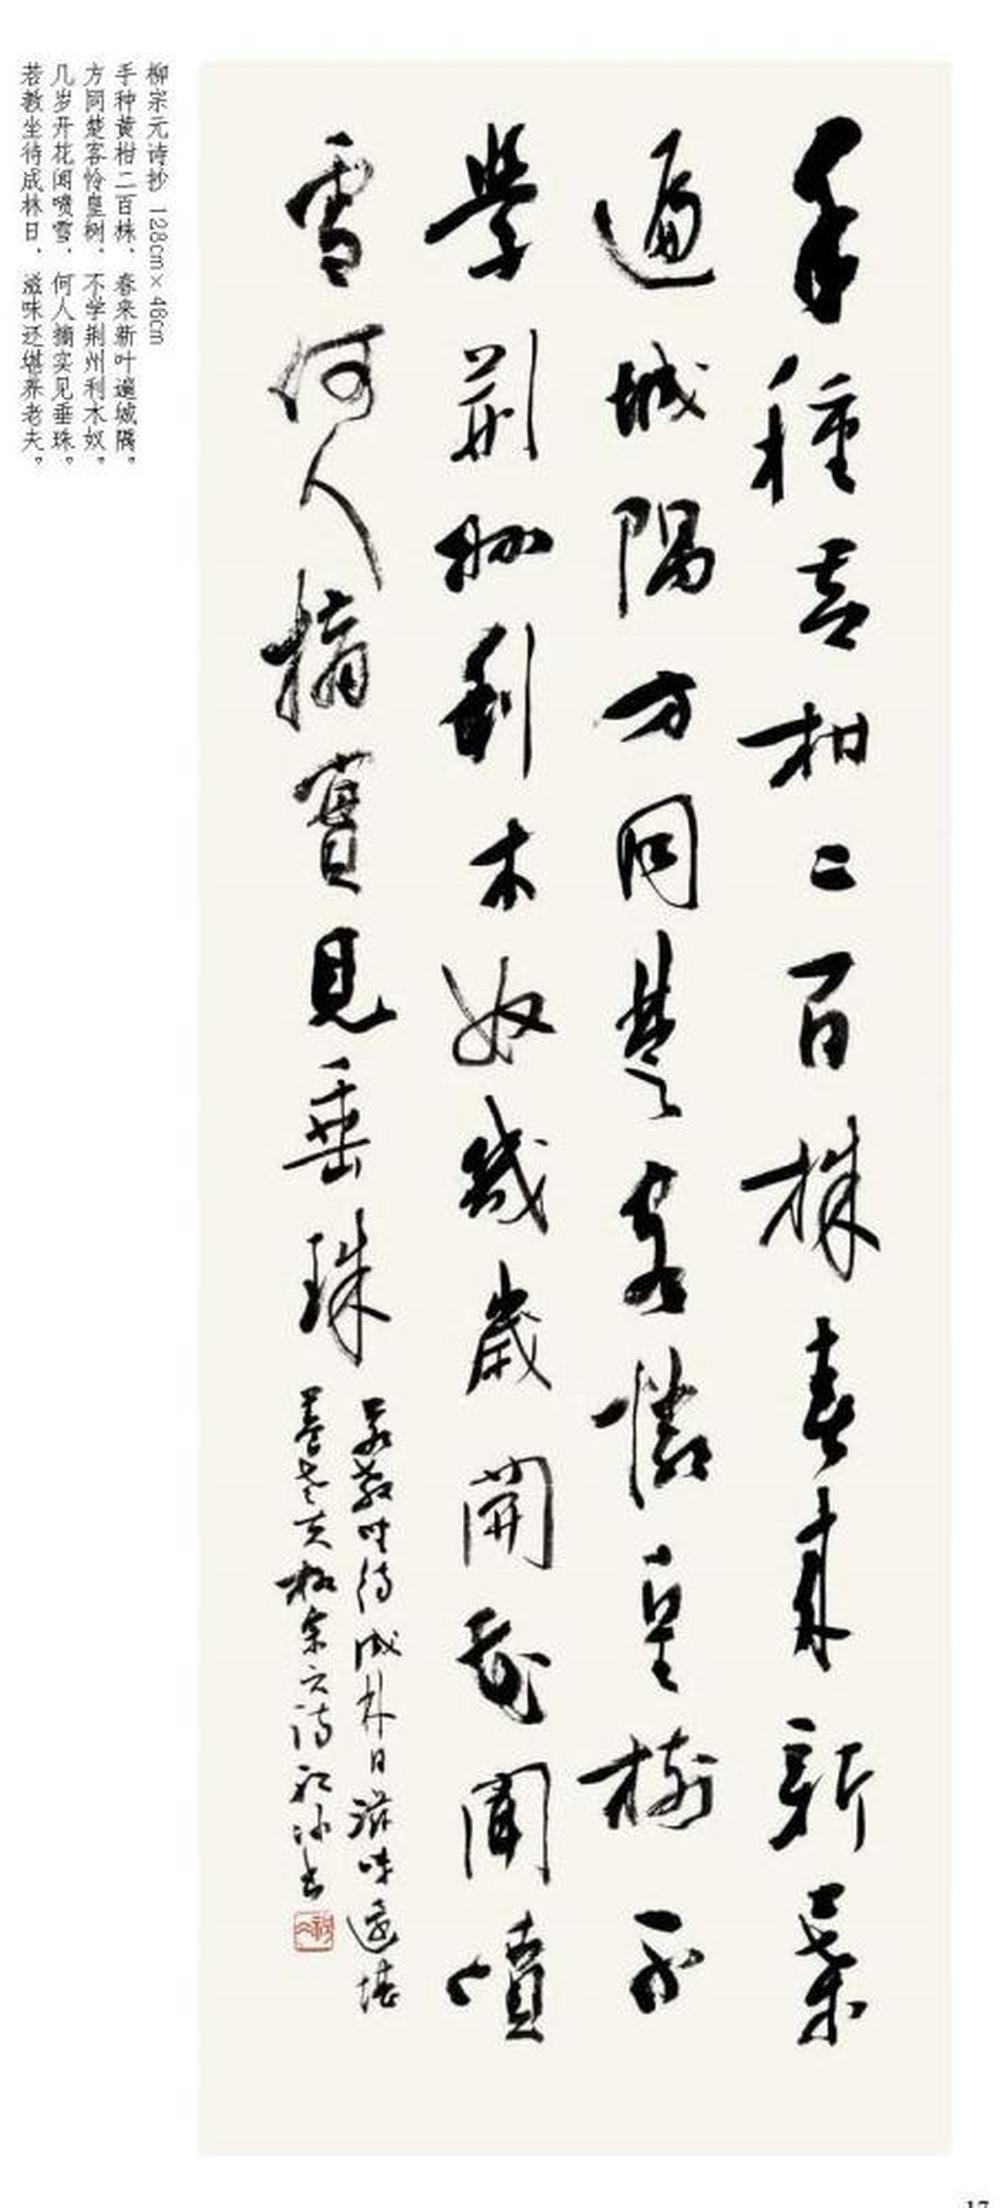 手種黃柑二百株春來新葉
遍城隅方同楚客憐皇樹不
學荊州利木奴幾歲開花聞噴
雪何人摘實見垂珠
若教坐待成林日滋味還堪
養老夫柳宗元詩初冰書
柳宗元诗抄 128cm×46cm
手种黄柑二百株，春来新叶遍城隅。
方同楚客怜皇树，不学荆州利木奴。
几岁开花闻喷雪，何人摘实见垂珠。
若教坐待成林日，滋味还堪养老夫。
17